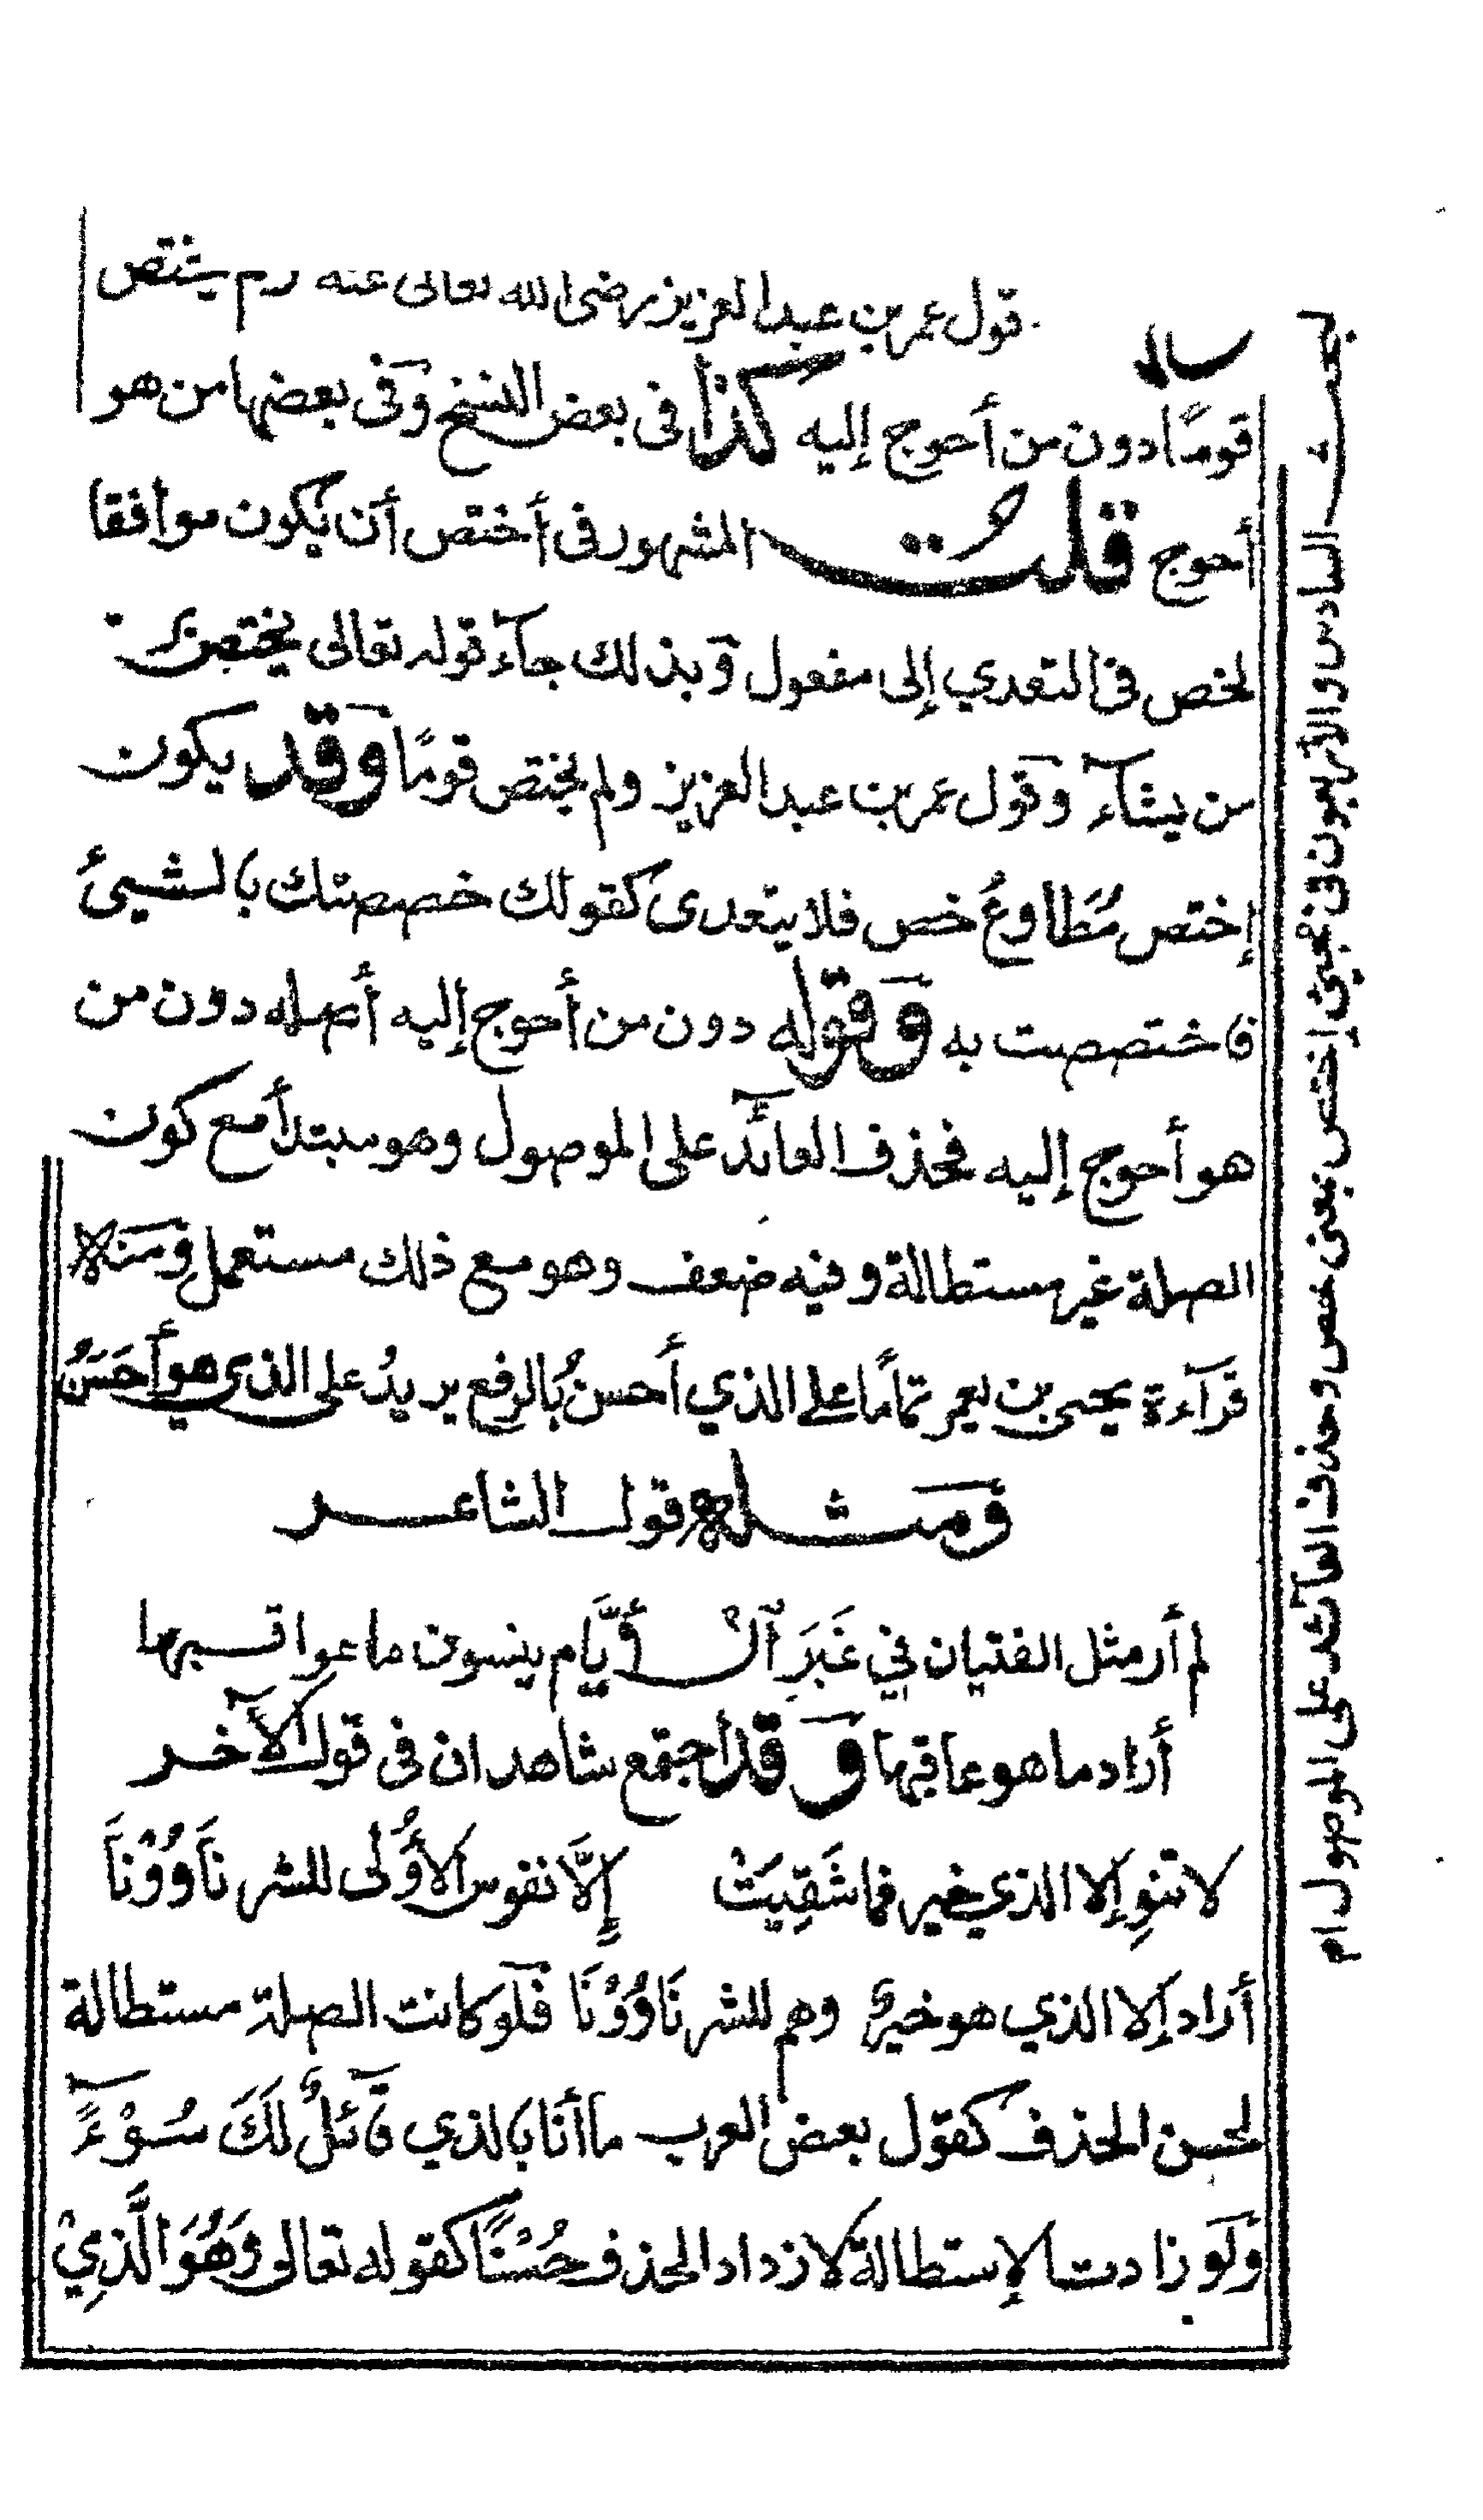 قول عمر بن عبد العزيز رضى الله تعالى عنه ولم يختص
قومًا دون من أحوج إليه كذا فى بعض النسخ وَفى بعضها من هو
أحوج قلت المشهور فى أختص أن يكون موافقا
لخص فى التعدي إلى مفعول وَبذلك جآء قوله تعالى يختص برحمته
من يشآء وقول عمر بن عبد العزيز ولم يختص قومًا وَقد يكون
إختص مُطاوعُ خص فلا يتعدى كقولك خصصتك بالشيئ
فاختصصت به وَقوله دون من أحوج إليه أصله دون من
هو أحوج إليه فحذف العائد على الموصول وهو مبتدأ مع كون
الصلة غير مستطالة وفيه ضعف وهو مع ذلك مستعمل وَمنه
قرآءة يحيى بن يعمر تمامًا على الذي أحسنُ بالرفع يريدُ على الذي هو أحسَنُ
وَمثله قول الشاعر
لم أر مثل الفتيان في غَبَرِ الْأَيَّام ينسون ما عواقبها
أراد ما هو عاقبها وَقد اجتمع شاهدان فى قول الآخر
لا تنوِ إلا الذي خير فما شَقِيَتْ إِلَّا نفوس الأُولى للشر نَاوُوْنَا
أراد إلا الذي هو خيرٌ وهم للشر نَاوُوْنَا فلو كانت الصلة مستطالة
لحسن الحذف كقول بعض العرب ما أنا بالذي قَائلٌ لَكَ سُوْءً
وَلو زادت الإستطالة لازداد الحذف حُسْنًا كقوله تعالى وَهُوَ الَّذِيْ
السادس والأربعون فى مجيئ إختص بمعنى خص وحذف العآئد على الموصول ام